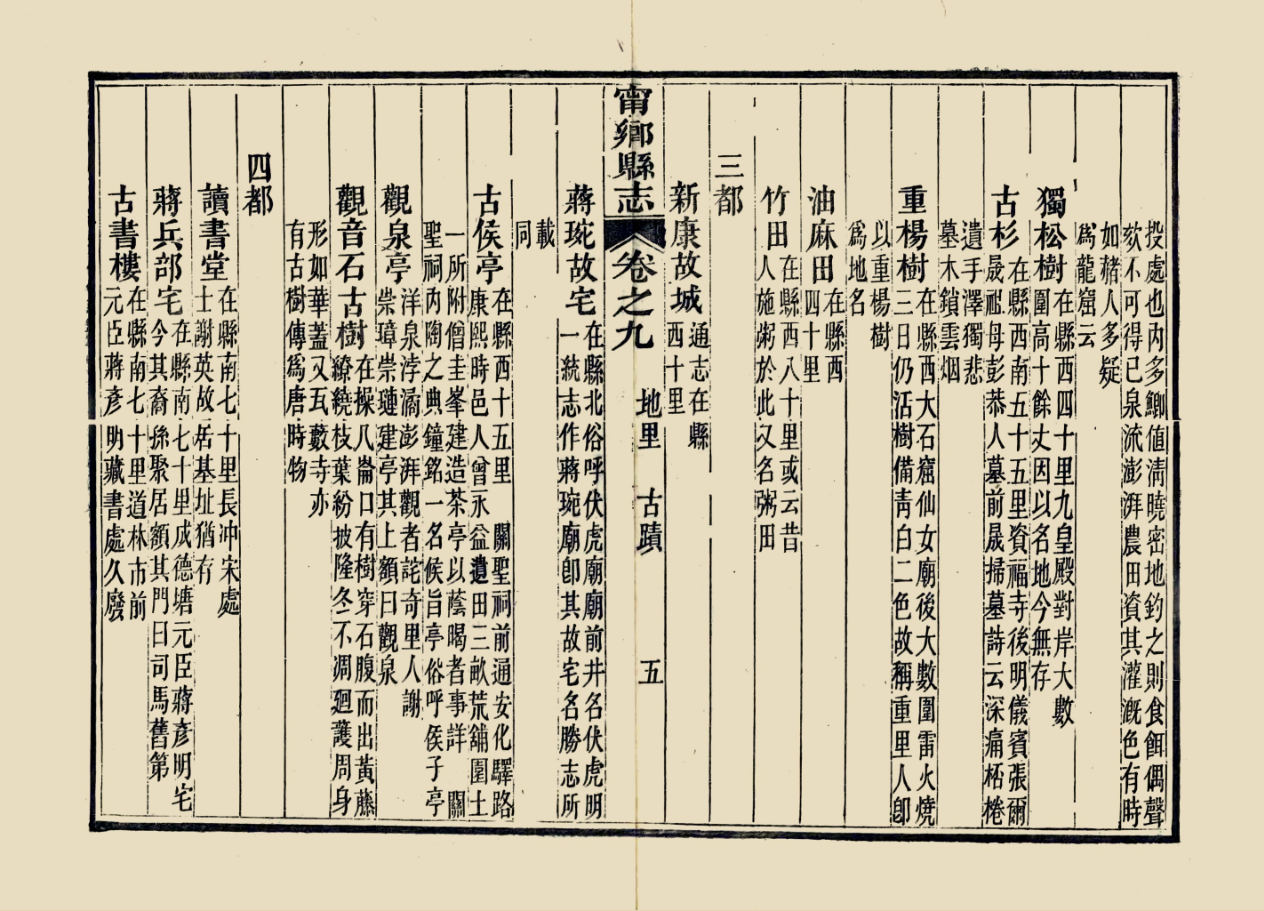 投處也內多鯽值清曉密地釣之則食餌偶聲
欬不可得已泉流澎湃農田資其灌漑色有時
如赭人多疑
爲龍窟云
獨松樹在縣西四十里九皇殿對岸大數
圍高十餘丈因以名地今無存
古杉在縣西南五十五里資福寺後明儀賓張爾
晟祖母彭恭人墓前晟掃墓詩云深痛桮棬
遺手澤獨悲
墓木鎖雲烟
重楊樹在縣西大石窟仙女廟後大數圍雷火燒
三日仍活樹備靑白二色故稱重里人卽
以重楊樹
爲地名
油麻田在縣西
四十里
竹田在縣西八十里或云昔
人施粥於此又名粥田
三都
新康故城通志在縣
西十里
甯鄉縣志 卷之九 地里 古蹟 五
蔣琬故宅在縣北俗呼伏虎廟廟前井名伏虎明
一統志作蔣琬廟卽其故宅名勝志所
載
同
古侯亭在縣西十五里 關聖祠前通安化驛路
康熙時邑人曾永益遺田三畝荒舖圍土
一所附僧圭峯建造茶亭以蔭暍者事詳 關
聖祠內陶之典鐘銘一名候旨亭俗呼侯子亭
觀泉亭洋泉浡潏澎湃觀者詫奇里人謝
崇璋崇璉建亭其上額曰觀泉
觀音石古樹在操八崙口有樹穿石腹而出黃藤
繚繞枝葉紛披隆冬不凋廻護周身
形如華蓋又瓦藪寺亦
有古樹傳爲唐時物
四都
讀書堂在縣南七十里長冲宋處
士謝英故居基址猶有
蔣兵部宅在縣南七十里成德塘元臣蔣彥明宅
今其裔孫聚居額其門曰司馬舊第
古書樓在縣南七十里道林市前
元臣蔣彥明藏書處久廢